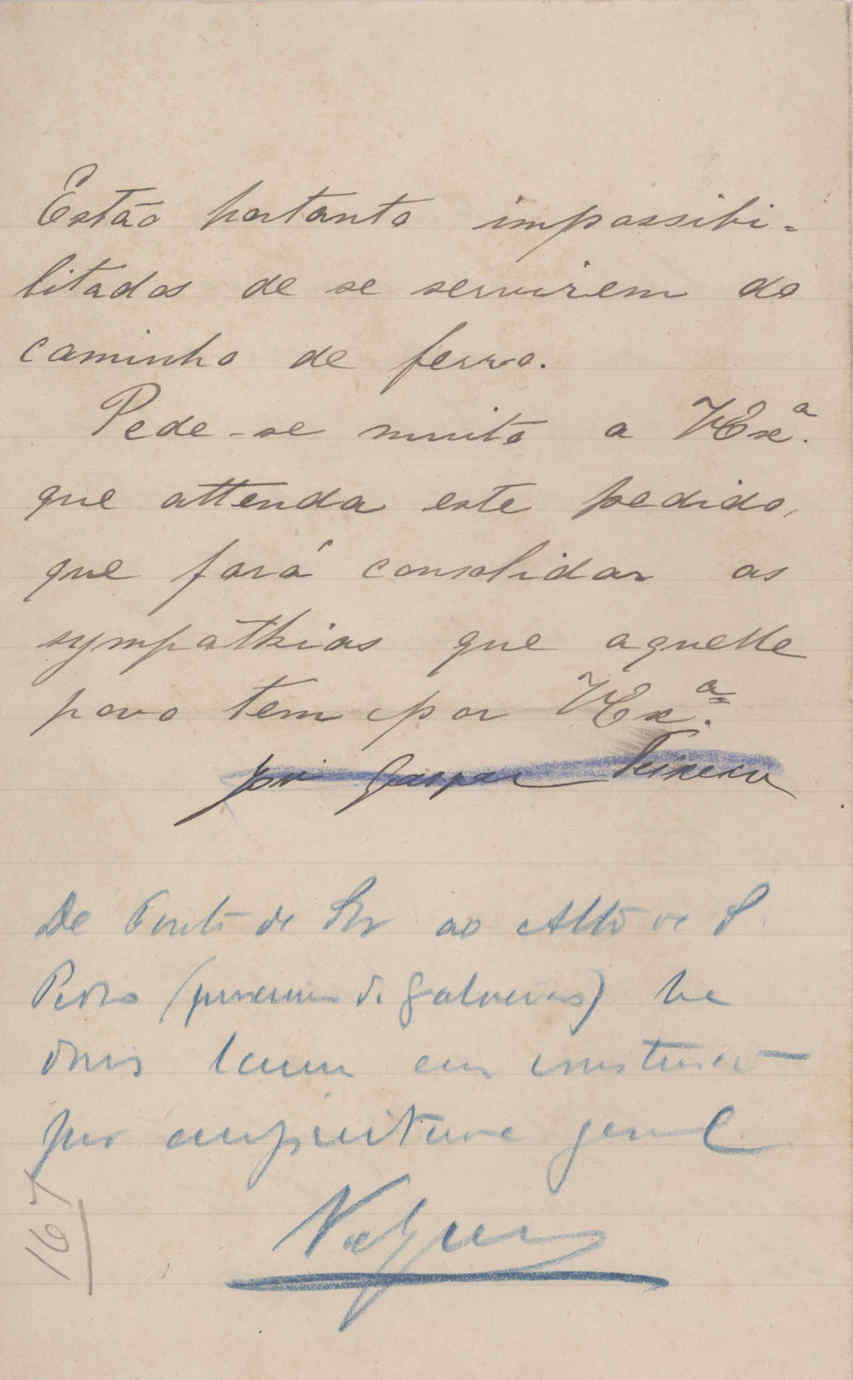 Estão portanto impossibi-
litados de se servirem do
caminho de ferro.
Pede-se muito a VExª.
que attenda este pedido,
que fará consolidar as
sympathias que aquelle
povo tem por VExª.
José Gaspar Teixeira
De Ponte de Sôr ao Alto de S.
Pedro (proximo de Galveias) ha
dois lanços em construcção
por empreitada geral
167